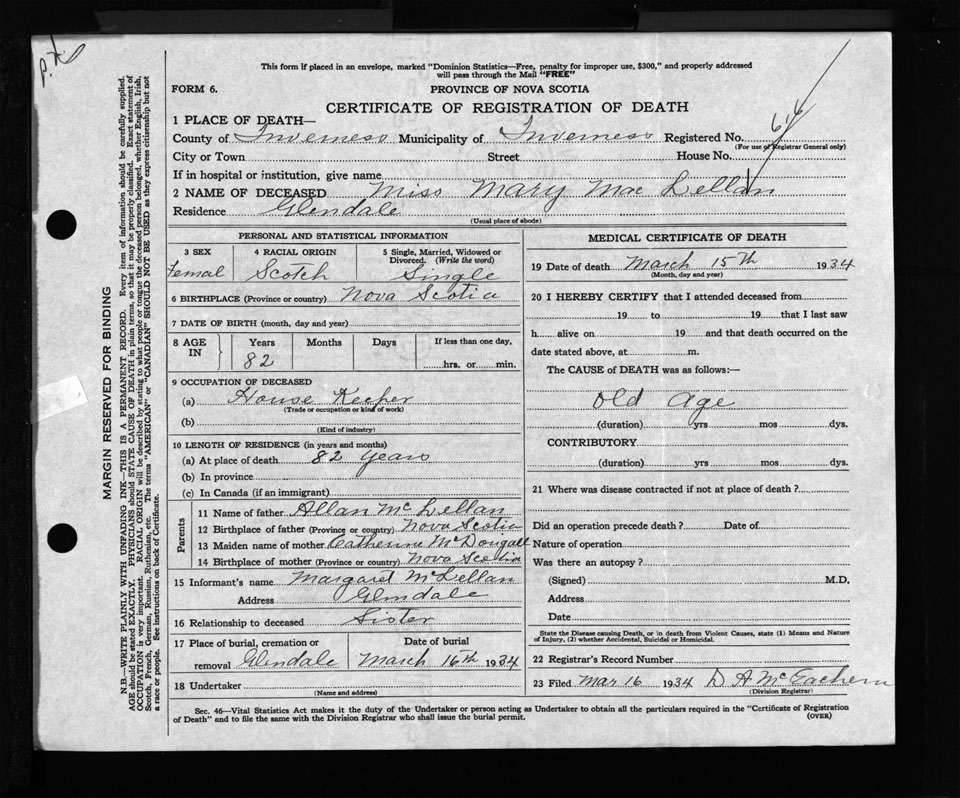 P.X.
This form if placed in an envelope, marked "Dominion Statistics—Free, penalty for improper use, $300," and properly addressed
will pass through the Mail "FREE"
FORM 6.
PROVINCE OF NOVA SCOTIA
CERTIFICATE OF REGISTRATION OF DEATH
1 PLACE OF DEATH—
County of Inverness Municipality of Inverness Registered No. 616
(For use of Registrar General only)
City or Town Street House No.
If in hospital or institution, give name
2 NAME OF DECEASED Miss Mary Mac Lellan
Residence Glendale
(Usual place of abode)
PERSONAL AND STATISTICAL INFORMATION
3 SEX 4 RACIAL ORIGIN 5 Single, Married, Widowed or
Divorced. (Write the word)
Femal Scotch Single
6 BIRTHPLACE (Province or country) Nova Scotia
7 DATE OF BIRTH (month, day and year)
8 AGE IN Years Months Days If less than one day,
82 hrs. or min.
9 OCCUPATION OF DECEASED
(a) House Keeper
(Trade or occupation or kind of work)
(b)
(Kind of industry)
10 LENGTH OF RESIDENCE (in years and months)
(a) At place of death 82 years
(b) In province
(c) In Canada (if an immigrant)
Parents
11 Name of father Allan McLellan
12 Birthplace of father (Province or country) Nova Scotia
13 Maiden name of mother Catherine McDougall
14 Birthplace of mother (Province or country) Nova Scotia
15 Informant's name Margaret McLellan
Address Glendale
16 Relationship to deceased Sister
17 Place of burial, cremation or Date of burial
removal Glendale March 16th 1934
18 Undertaker
(Name and address)
MEDICAL CERTIFICATE OF DEATH
19 Date of death March 15th 1934
(Month, day and year)
20 I HEREBY CERTIFY that I attended deceased from
19 to 19 that I last saw
h alive on 19 and that death occurred on
date stated above, at m.
The CAUSE of DEATH was as follows:—
Old age
(duration) yrs mos dys.
CONTRIBUTORY
(duration) yrs mos dys.
21 Where was disease contracted if not at place of death?
Did an operation precede death? Date of
Nature of operation
Was there an autopsy?
(Signed) M.D.
Address
Date
State the Disease causing Death, or in death from Violent Causes, state (1) Means and Nature
of Injury, (2) whether Accidental, Suicidal or Homicidal.
22 Registrar's Record Number
23 Filed Mar 16 1934 D A McEachern
(Division Registrar)
Sec. 46—Vital Statistics Act makes it the duty of the Undertaker or person acting as Undertaker to obtain all the particulars required in the "Certificate of Registration
of Death" and to file the same with the Division Registrar who shall issue the burial permit.
(OVER)
MARGIN RESERVED FOR BINDING
N.B—WRITE PLAINLY WITH UNFADING INK—THIS IS A PERMANENT RECORD. Every item of information should be carefully supplied.
AGE should be stated EXACTLY. PHYSICIANS should STATE CAUSE OF DEATH in plain terms, so that it may be properly classified. Exact statement of
OCCUPATION is very important. RACIAL ORIGIN will be described by stating to what people or tongue the deceased person belonged, whether English, Irish,
Scotch, French, German, Russian, Ruthenian, etc. The terms "AMERICAN" or "CANADIAN" SHOULD NOT BE USED as they express citizenship but not
a race or people. See instructions on back of Certificate.